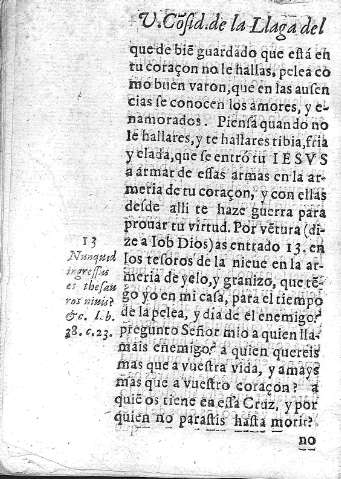 V. Cõsid. de la Llaga del
que de biẽ guardado que está en
tu coraçon no le hallas, pelea co
mo buen varon, que en las ausen
cias se conocen los amores, y e-
namorados. Piensa quando no
le hallares, y te hallares tibia, fria
y elada, que se entró tu IESVS
a armar de essas armas en la ar-
meria de tu coraçon, y con ellas
desde alli te haze guerra para
prouar tu virtud. Por vẽtura (di-
ze a Iob Dios) as entrado 13. en
los tesoros de la nieue en la ar-
meria de yelo, y granizo, que tẽ-
go yo en mi casa, para el tiempo
de la pelea, y dia de el enemigo?
pregunto Señor mio a quien lla-
mais enemigo? a quien quereis
mas que a vuestra vida, y amays
mas que a vuestro coraçon? a
quiẽ os tiene en essa Cruz, y por
quien no parastis hasta morir?
no
13
Nunquid
ingressus
es thesau
ros niuis?
&c. I.b.
38. c. 23.